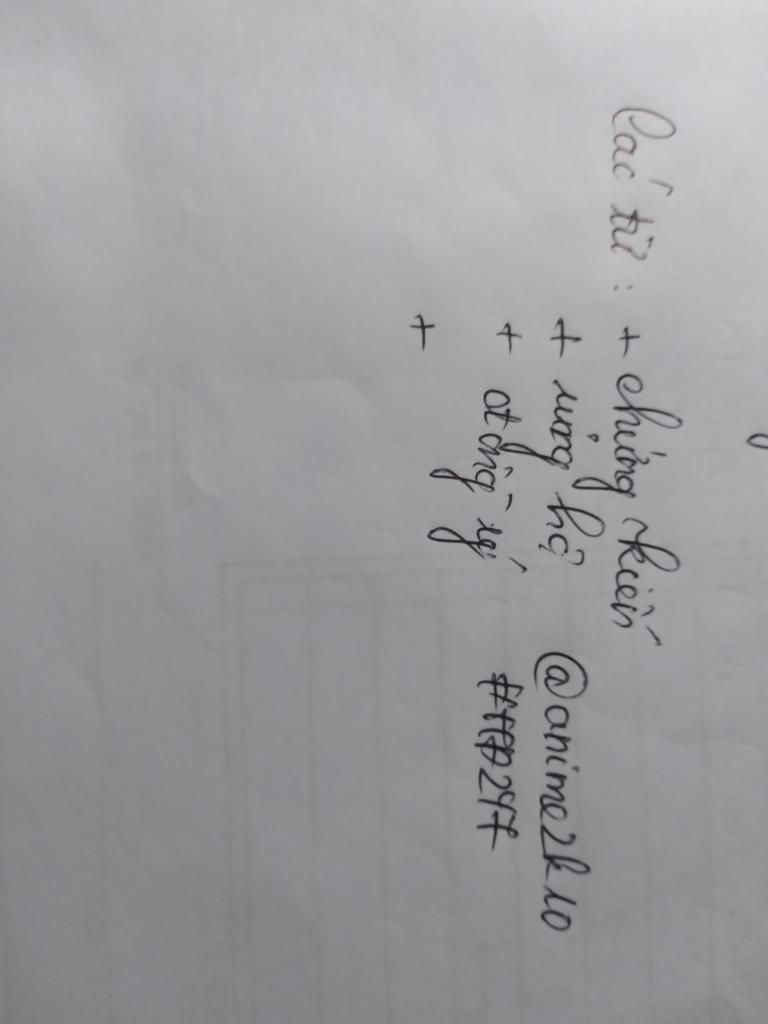 Các từ : + chứng kiến
+ ủng hộ
+ đồng ý
+
@anime2k10